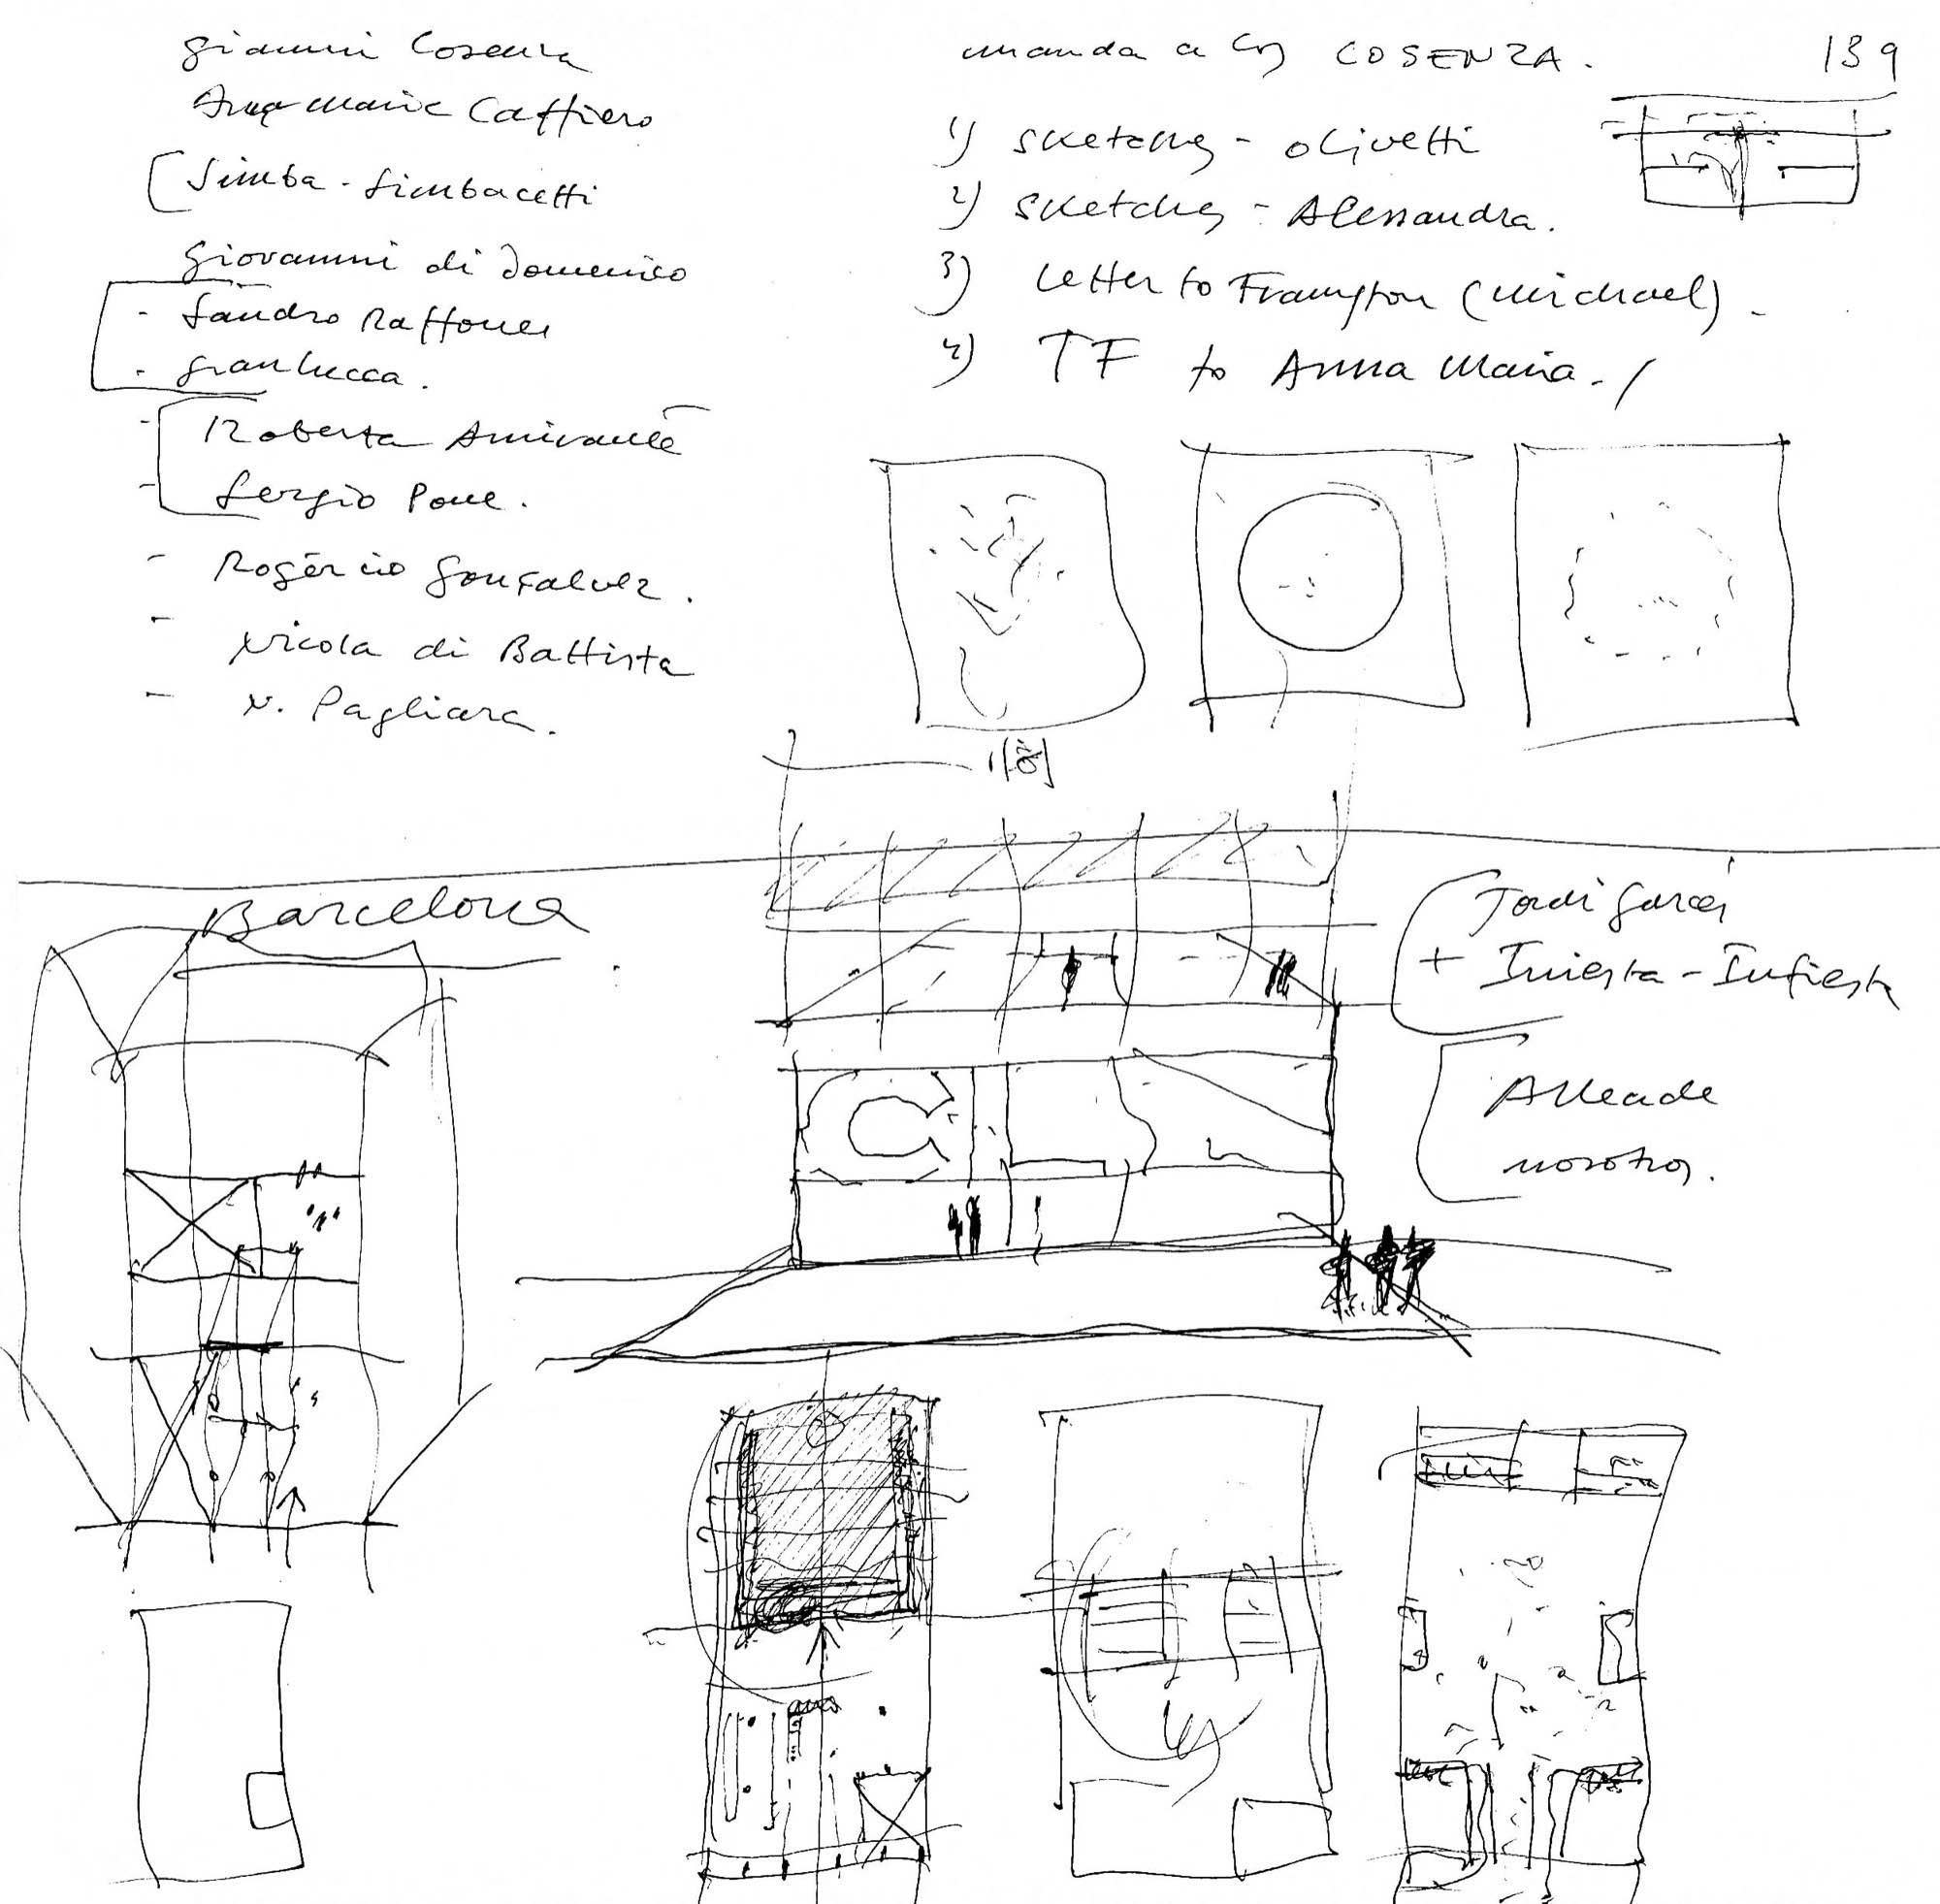 gianni Cosenza
Anna Maria Caffiero
Simba - Simbacetti
Giovanni di Domenico
- Sandro Raffone
- gianlucca.
- Roberta Amirante
- Sergio Pone.
- Rogério Gonçalvez.
- Nicola di Battista
- N. Pagliara.
manda a COSENZA.
139
1) sketches - olivetti
2) sketches - Alessandra.
3) Letter to Frampton (Michael).
4) TF to Anna Maria.
Barcelona
Jordi Garcés
+ Iniesta - Infiesta
Alleade
nosotros.